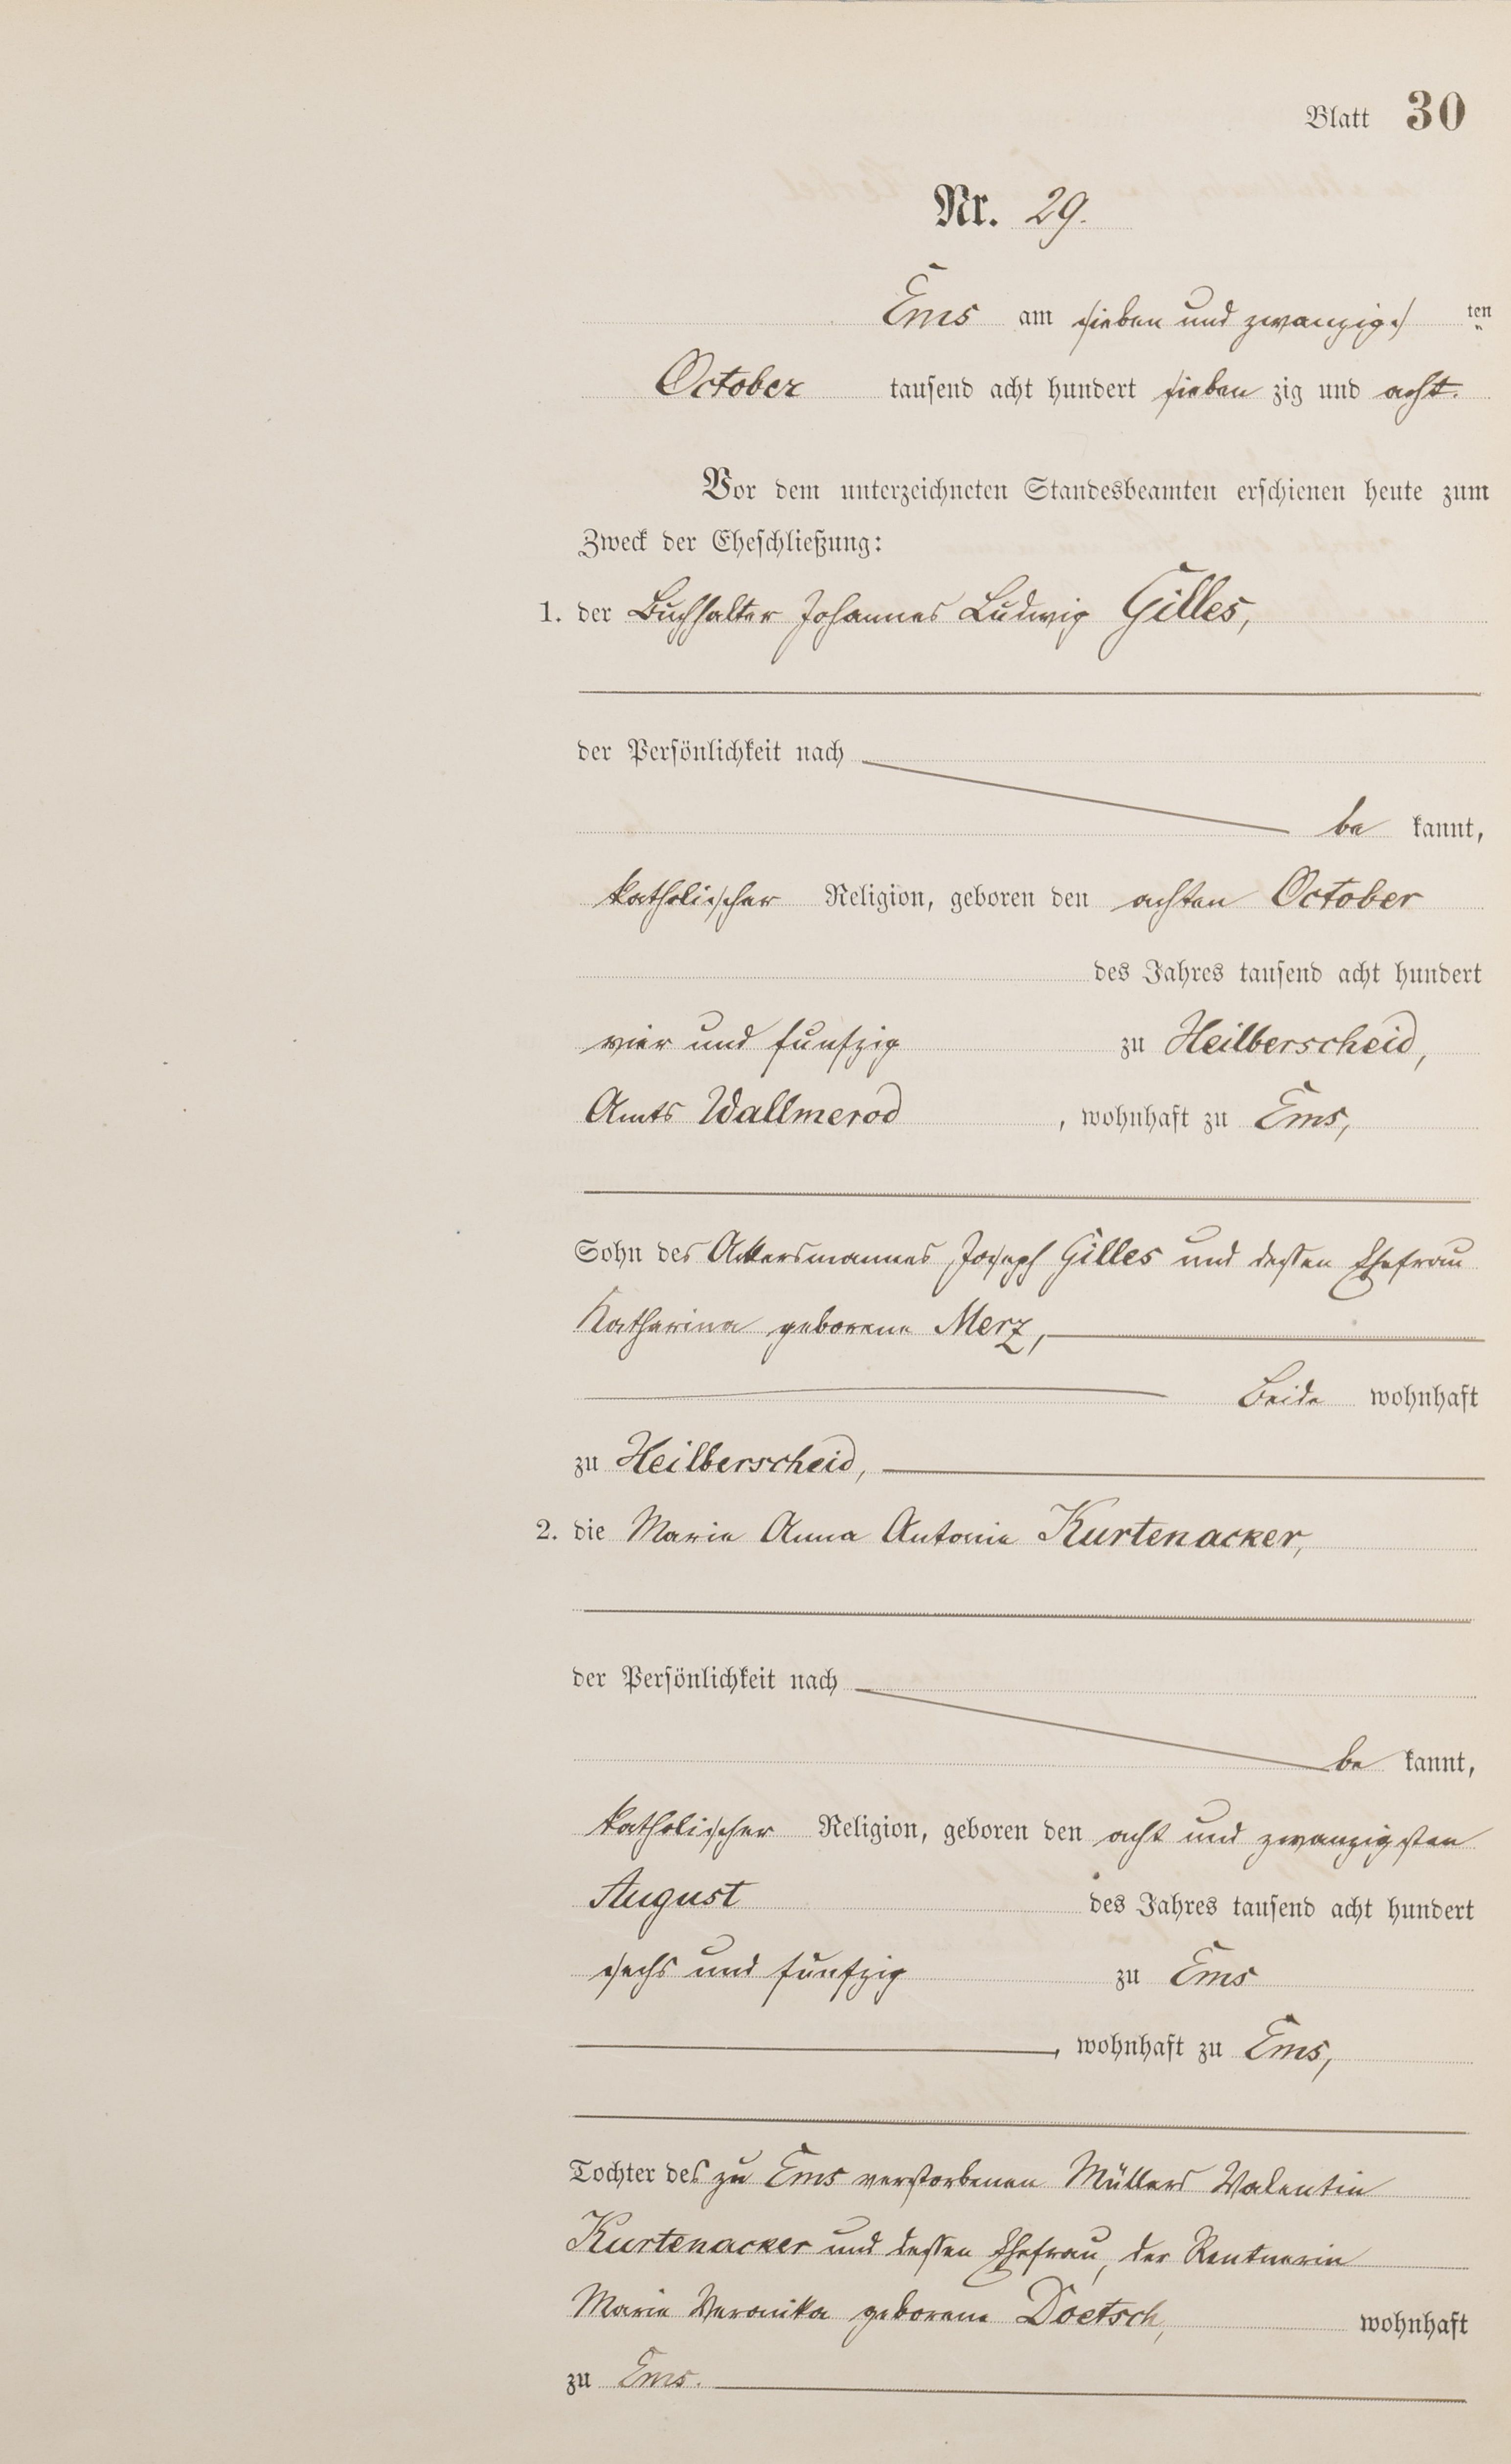 Blatt 30
Nr. 29.
Ems am sieben und zwanzigs ten
October tausend acht hundert sieben zig und acht.
Vor dem unterzeichneten Standesbeamten erschienen heute zum
Zweck der Eheschließung:
1. der Buchhalter Johannes Ludwig Gilles,
der Persönlichkeit nach
be kannt,
katholischer Religion, geboren den achten October
des Jahres tausend acht hundert
vier und funfzig zu Heilberscheid,
Amts Wallmerod , wohnhaft zu Ems,
Sohn des Ackersmannes Joseph Gilles und dessen Ehefrau
Katharina geborene Merz,
Beide wohnhaft
zu Heilberscheid,
2. die Marie Anna Antonie Kurtenacker,
der Persönlichkeit nach
be kannt,
katholischer Religion, geboren den acht und zwanzigsten
August des Jahres tausend acht hundert
sechs und funfzig zu Ems
, wohnhaft zu Ems,
Tochter des zu Ems verstorbenen Müllers Valentin
Kurtenacker und dessen Ehefrau, der Rentnerin
Marie Veronika geborene Doetsch, wohnhaft
zu Ems.